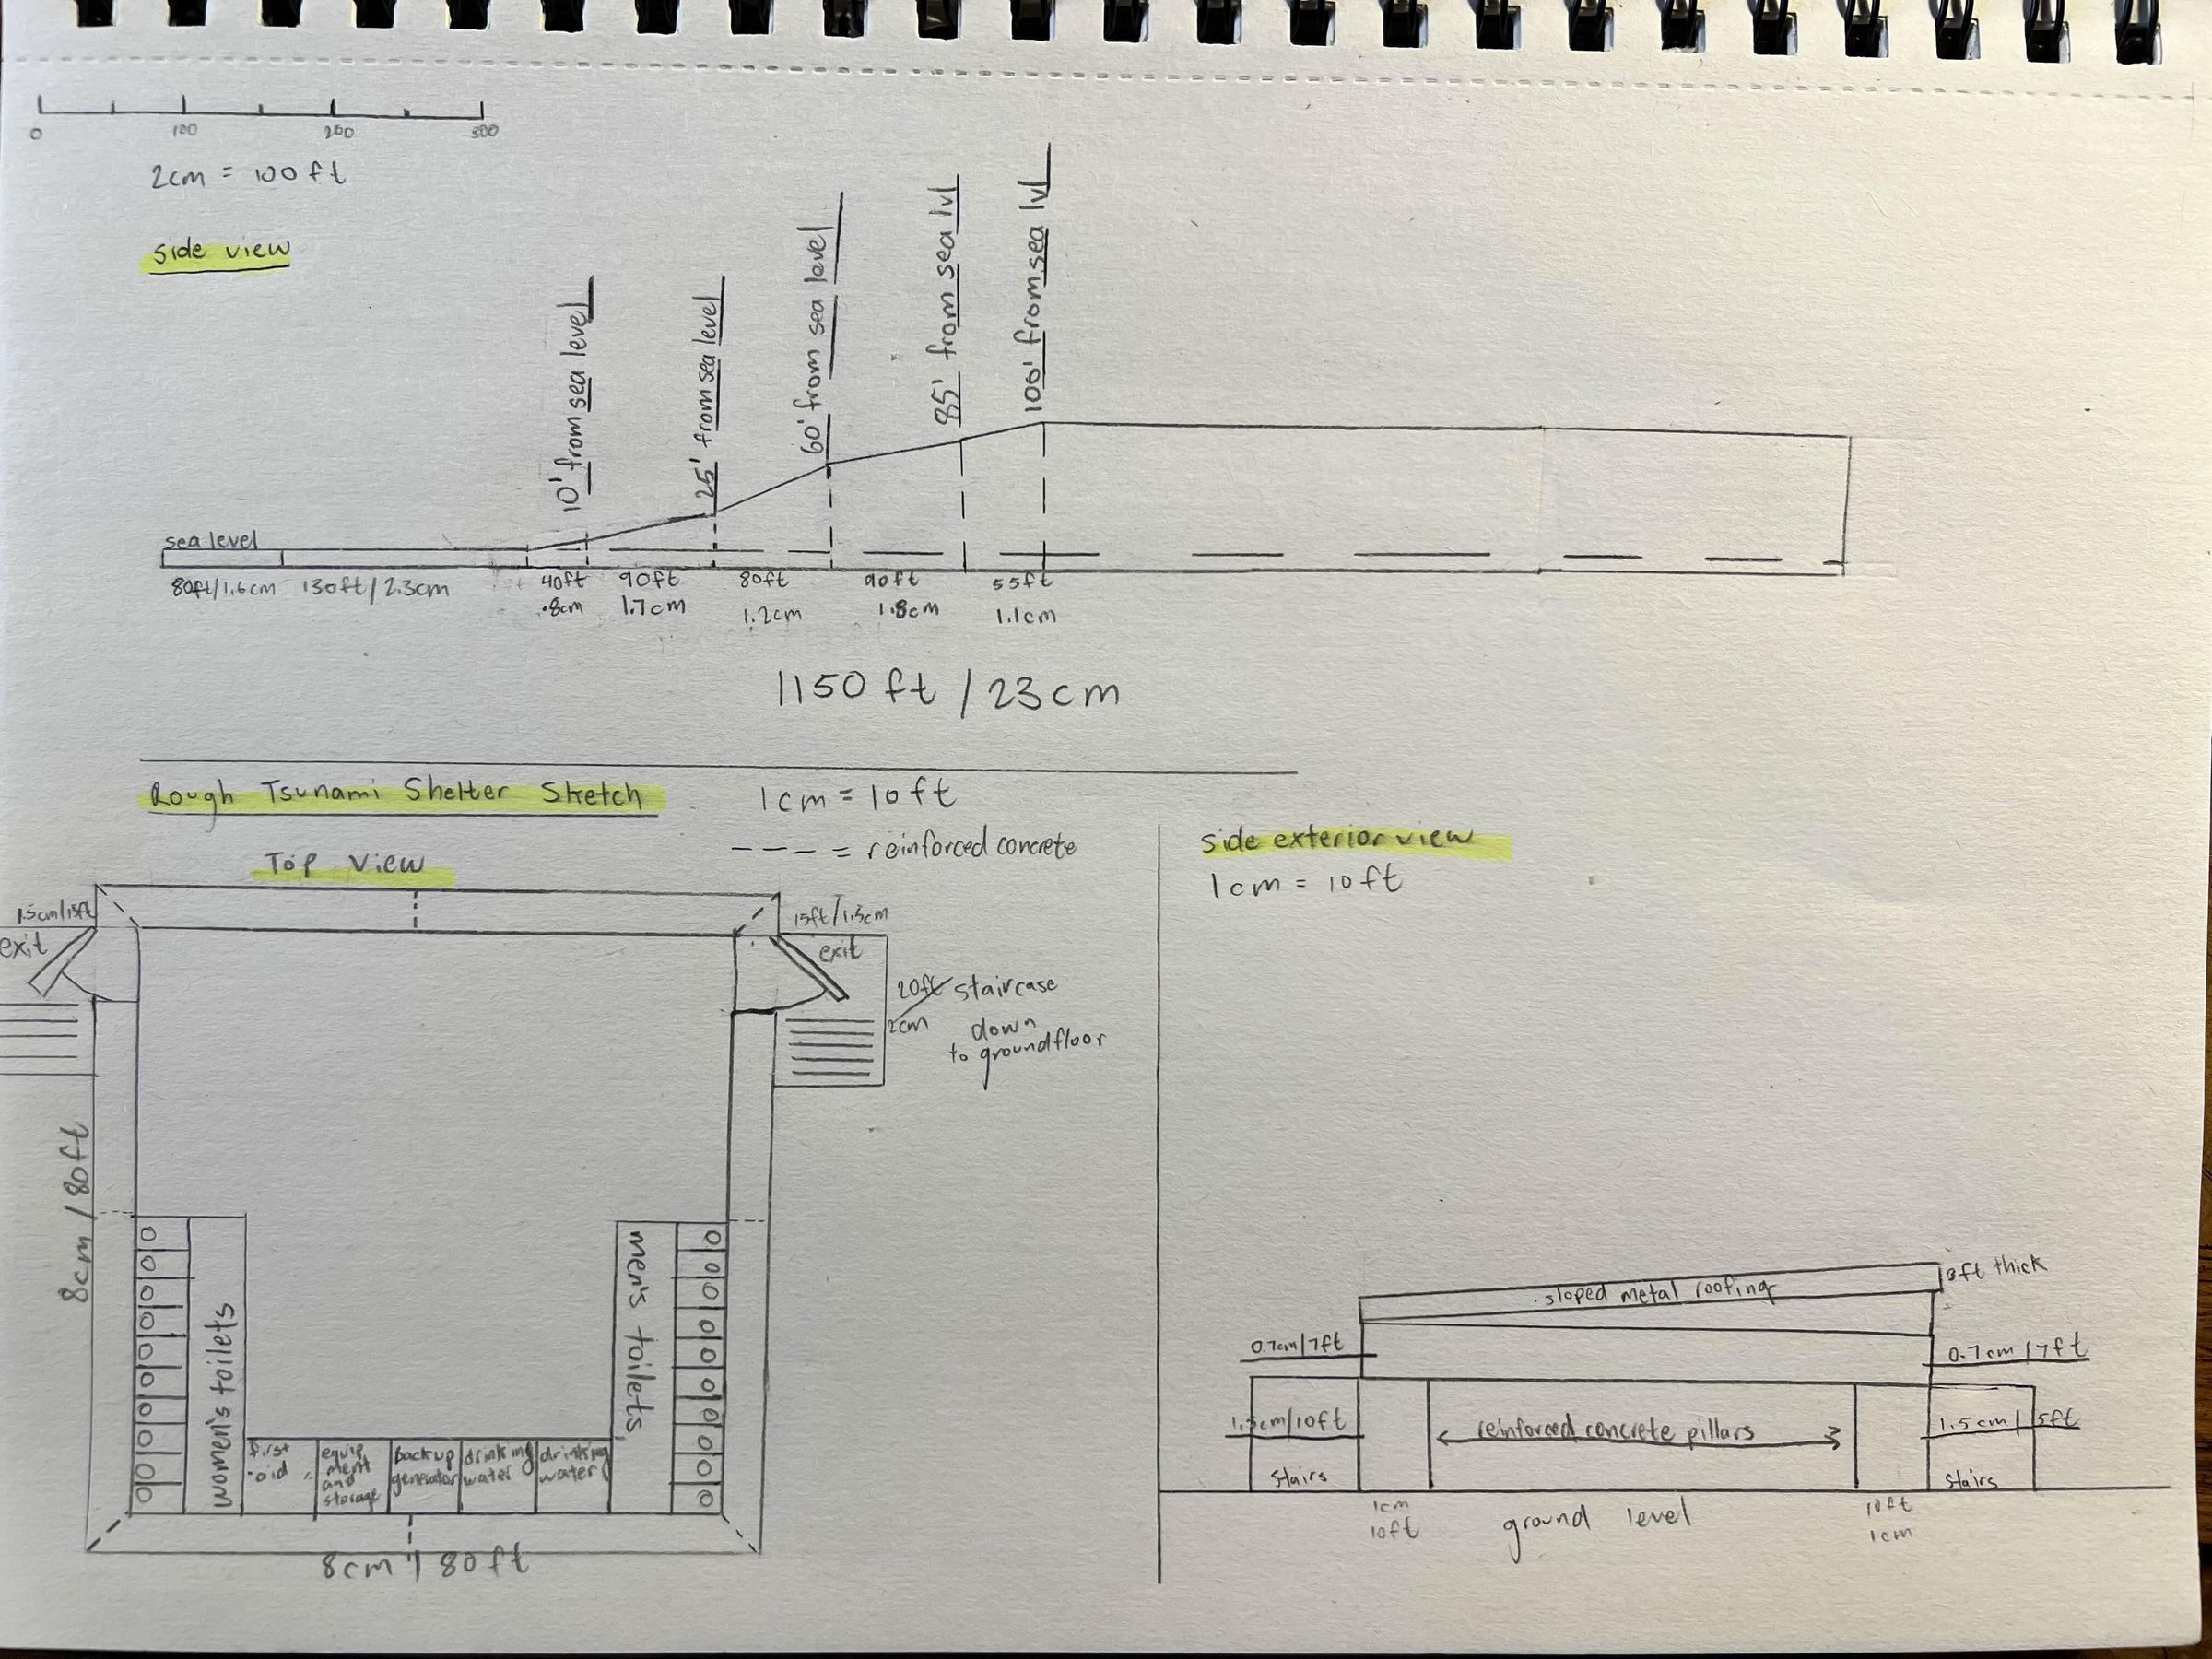 0 100 200 300
2cm = 100ft
side view
10' from sea level
25' from sea level
60' from sea level
85' from sea lvl
100' from sea lvl
sea level
80ft/1.6cm 130ft/2.3cm
40ft 90ft 80ft 90ft 55ft
.8cm 1.7cm 1.2cm 1.8cm 1.1cm
1150 ft / 23cm
Rough Tsunami Shelter Sketch
1cm = 10ft
--- = reinforced concrete
Top View
1.5cm/15ft
exit
15ft/1.5cm
exit
20ft
2cm
staircase
down
to groundfloor
8cm / 80ft
women's toilets
men's toilets
first
aid
equip
ment
and
storage
backup
generator
drinking
water
drinking
water
8cm / 80ft
side exterior view
1cm = 10ft
sloped metal roofing
ft thick
0.7cm/7ft
0.7cm/7ft
reinforced concrete pillars
1.5cm
stairs
stairs
1cm
10ft
ground level
10ft
1cm